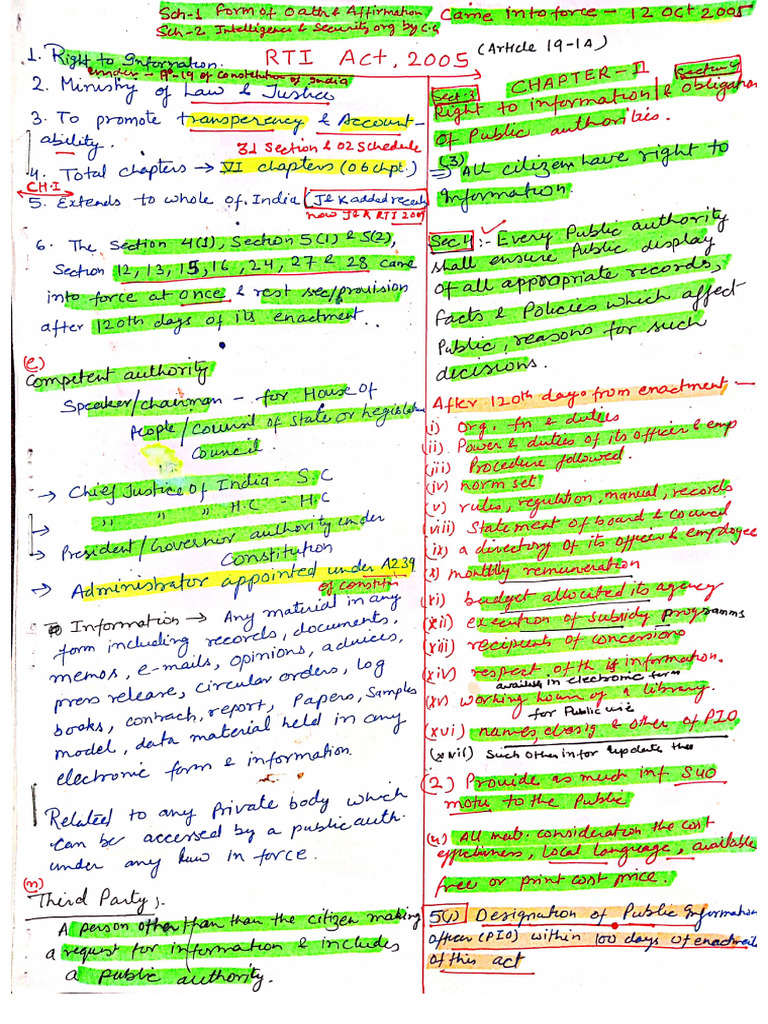 Sch-1 Form of Oath & Affirmation
Sch-2 Intelligence & Security org by C.G
Came into force - 12 Oct 2005
RTI Act, 2005
(Article 19-1A)
1. Right to Information.
under - Ar-19 of constitution of India
2. Ministry of Law & Justice
3. To promote transperency & Account-
ability.
31 Section & 02 Schedule
4. Total chapters → VI chapters (06 chpt.)
CH.I
5. Extends to whole of India (J&K added recently
now J&K RTI 2009
6. The Section 4(1), Section 5(1) & 5(2),
Section 12, 13, 15, 16, 24, 27 & 28 came
into force at once & rest sec/provision
after 120th days of its enactment.
(e)
Competent authority
Speaker/chairman - for House of
People/Council of State or Legislative
Council
→ Chief Justice of India - S.C
→ " " " H.C - H.C
→ President/Governor authority under
Constitution
→ Administrator appointed under A239
of constitn
Information → Any material in any
form including records, documents,
memos, e-mails, opinions, advices,
press release, circular orders, log
books, contrach, report, Papers, Samples
model, data material held in any
electronic form & information.
Related to any Private body which
can be accessed by a public auth.
under any law in force.
(n)
Third Party;.
A person other than than the citizen making
a request for information & includes
a public authority.
CHAPTER-II
Sect.3 Section 4
Right to information & obligation
of Public authorities.
(3)
⇒ All citizen have right to
Information.
Sec 4 :- Every Public authority
shall ensure Public display
of all appropriate records,
Facts & Policies which affect
Public, reasons for such
decisions.
After 120th days from enactment -
(i) Org. fn & duties
(ii) Power & duties of its officer & emp
(iii) Procedure followed.
(iv) norm set
(v) rules, regulation, manual, records
(viii) Statement of board & council
(ix) a directory of its officer & employee
(x) monthly remuneration
(xi) budget allocated its agency
(xii) execution of subsidy programms
(xiii) recipients of concessions
(xiv) respect of th information.
available in electronic form
(xv) working hours of a library.
for Public use
(xvi) names, desig & other of PIO
(xvii) Such other infor update the
(2) Provide as much inf. suo
motu to the Public
(4) All mat. consideration the cost
effectiveness, local language, available
free or print cost price.
5(1) Designation of Public Information
officer (PIO) within 100 days of enactment
of this act